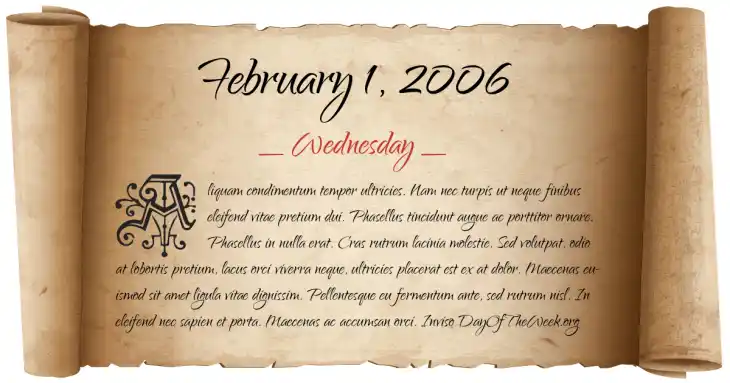 February 1, 2006
— Wednesday —
Aliquam condimentum tempor ultricies. Nam nec turpis ut neque finibus
eleifend vitae pretium dui. Phasellus tincidunt augue ac porttitor ornare.
Phasellus in nulla erat. Cras rutrum lacinia molestie. Sed volutpat, odio
at lobortis pretium, lacus orci viverra neque, ultricies placerat est ex at dolor. Maecenas eu-
ismod sit amet ligula vitae dignissim. Pellentesque eu fermentum ante, sed rutrum nisl. In
eleifend nec sapien et porta. Maecenas ac accumsan orci. Inviso DayOfTheWeek.org